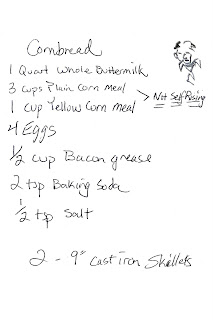 Cornbread
1 Quart Whole Buttermilk
3 cups Plain Corn Meal
1 cup Yellow Corn meal > Not Self Rising
4 Eggs
1/2 cup Bacon grease
2 tsp Baking Soda
1/2 tsp Salt
2 - 9" cast iron Skillets